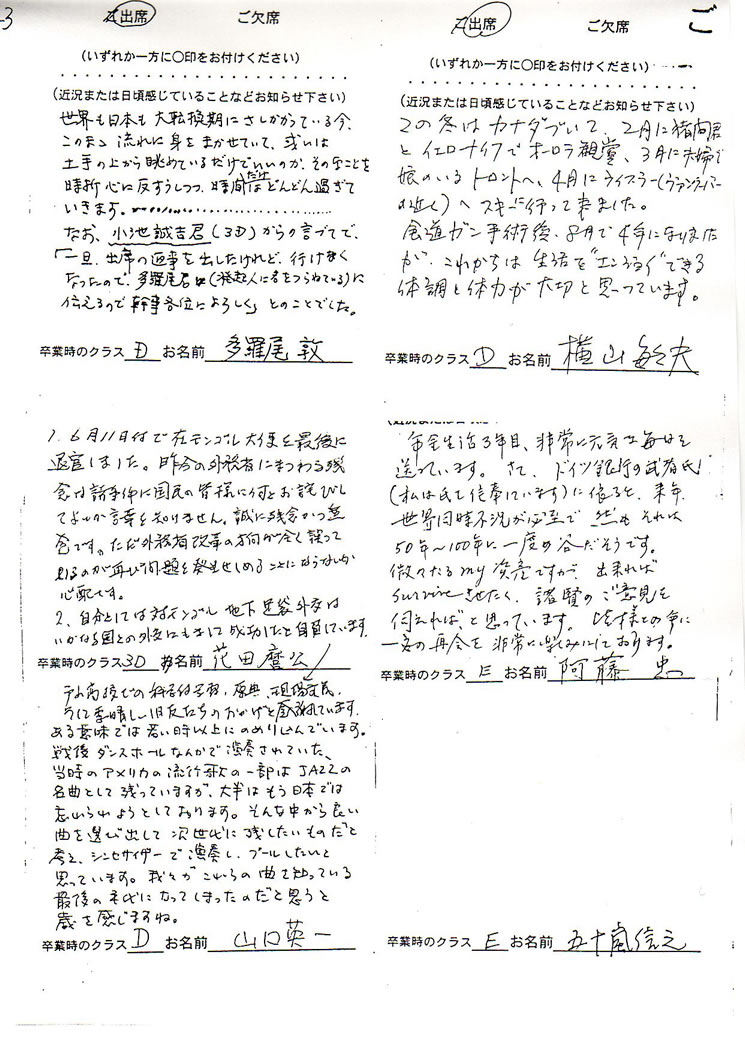 ご出席 ご欠席
(いずれか一方に〇印をお付けください)
(近況または日頃感じていることなどお知らせ下さい)
世界も日本も大転換期にさしかかっている今、
このまま流れに身をまかせていて、或いは
土手の上から眺めているだけでいいのか、そのようなことを
時折心に反すうしつつ、時間だけはどんどん過ぎて
いきます。
なお、小池誠吉君(3D)からの言づてで、
「一旦、出席の返事を出したけれど、行けなく
なったので、多羅尾君(発起人に名をつらねている)に
伝えるので幹事各位によろしく」とのことでした。
卒業時のクラス D お名前 多羅尾 敦
ご出席 ご欠席
ご
(いずれか一方に〇印をお付けください)
(近況または日頃感じていることなどお知らせ下さい)
この冬はカナダづいて、2月に猪向君
とイエローナイフでオーロラ観賞、3月に夫婦で
娘のいるトロントへ、4月にウィスラー(ヴァンクーバー
の近く)へスキーに行って来ました。
食道ガン手術後、8月で4年になりました
が、これからは生活を"エンジョイ"できる
体調と体力が大切と思っています。
卒業時のクラス D お名前 横山 敏夫
1. 6月11日付で在モンゴル大使を最後に
退官しました。昨今の外務省にまつわる残
念な諸事件に国民の皆様に何とお詫びし
てよいか言葉を知りません。誠に残念かつ無
念です。ただ外務省改革の方向が全く誤って
いるのが再び問題を発生せしめることにならないか
心配です。
2. 自分としては対モンゴル地下足袋外交は
いかなる国との外交にもまして成功したと自負しています。
卒業時のクラス 3D お名前 花田麿公
年金生活3年目、非常に元気な毎日を
送っています。さて、ドイツ銀行の武者氏
(私は氏を信奉しています)に依ると、来年
世界同時不況が必至で然もそれは
50年〜100年に一度の谷だそうです。
微々たるmy資産ですが、出来れば
surviveさせたく、諸賢のご意見を
伺えればと思っています。皆様との年に
一度の再会を非常に楽みにしております。
卒業時のクラス E お名前 阿藤 忠
うに素晴しい旧友たちのおかげと感謝しています。
ある意味では若い時以上にのめり込んでいます。
戦後ダンスホールなんかで演奏されていた、
当時のアメリカの流行歌の一部はJAZZの
名曲として残っていますが、大半はもう日本では
忘れられようとしております。そんな中から良い
曲を選び出して次世代に残したいものだと
考え、シンセサイザーで演奏し、プールしたいと
思っています。我々がこれらの曲を知っている
最後の世代になってしまったのだと思うと
歳を感じますね。
卒業時のクラス D お名前 山口英一
卒業時のクラス E お名前 五十嵐信之